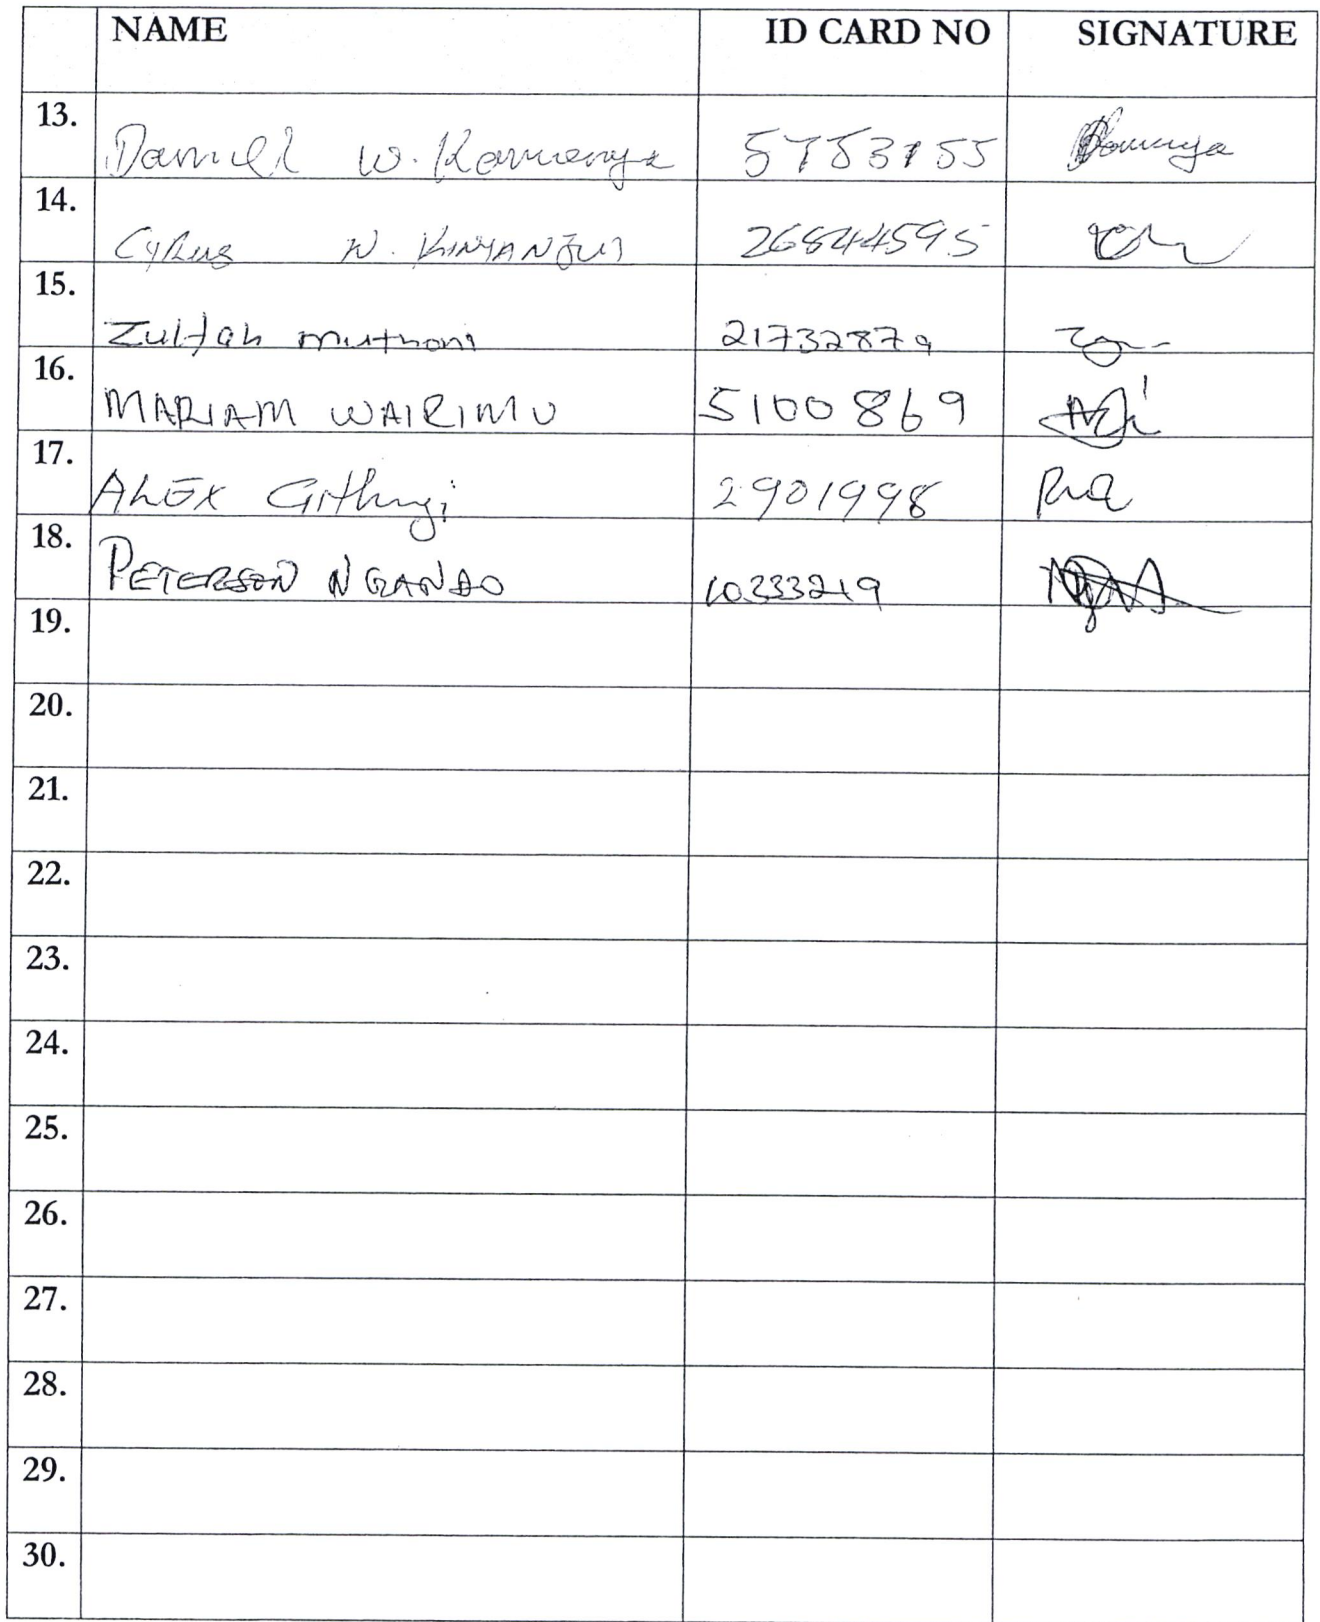 NAME ID CARD NO SIGNATURE
13. Daniel W. Kamenya
14. Cyrus N. KINYANJUI 26844595
15. Zulfah muthoni 21732879
16. MARIAM WAIRIMU 5100869
17. ALEX Githugi 2901998
18. PETERSON NGANDO 10333219
19.
20.
21.
22.
23.
24.
25.
26.
27.
28.
29.
30.